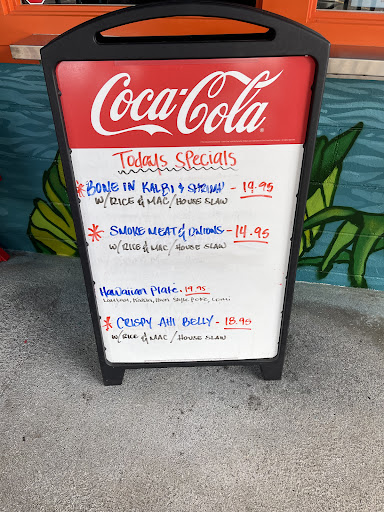 Coca-Cola
Todays Specials
* BONE IN KALBI & SHRIMP - 19.95
W/RICE & MAC/HOUSE SLAW
* SMOKE MEAT & ONIONS - 14.95
W/RICE & MAC/HOUSE SLAW
Hawaiian Plate - 19.95
Style Poke,
* CRISPY AHI BELLY - 18.95
W/RICE & MAC/HOUSE SLAW